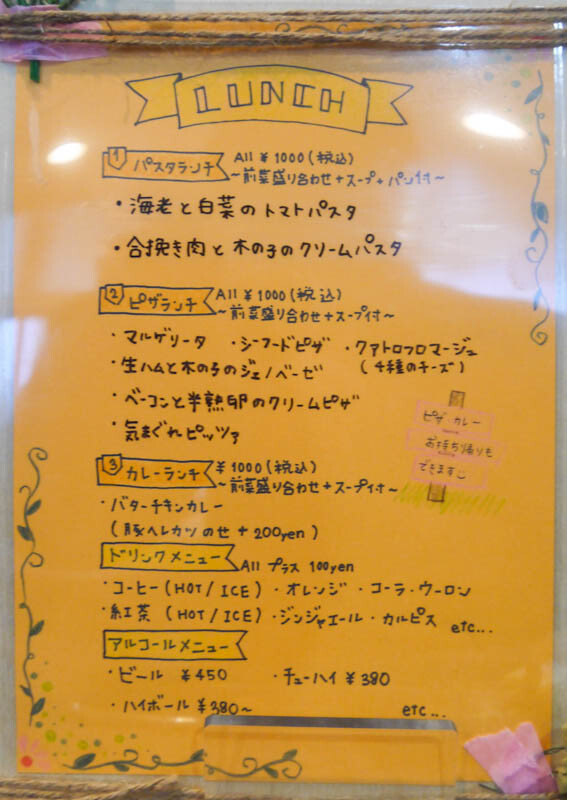 LUNCH
1 パスタランチ All ¥1000(税込)
～前菜盛り合わせ+スープ+パン付～
・海老と白菜のトマトパスタ
・合挽き肉と木の子のクリームパスタ
2 ピザランチ All ¥1000(税込)
～前菜盛り合わせ+スープ付～
・マルゲリータ ・シーフードピザ ・クアトロフロマージュ
(4種のチーズ)
・生ハムと木の子のジェノベーゼ
・ベーコンと半熟卵のクリームピザ
・気まぐれピッツァ
ピザ・カレー
お持ち帰りも
できます
3 カレーランチ ¥1000(税込)
～前菜盛り合わせ+スープ付～
・バターチキンカレー
(豚ヘレカツのせ + 200yen)
ドリンクメニュー All プラス 100yen
・コーヒー(HOT/ICE) ・オレンジ ・コーラ・ウーロン
・紅茶 (HOT/ICE) ・ジンジャエール ・カルピス etc...
アルコールメニュー
・ビール ¥450 ・チューハイ ¥380
・ハイボール ¥380～ etc...